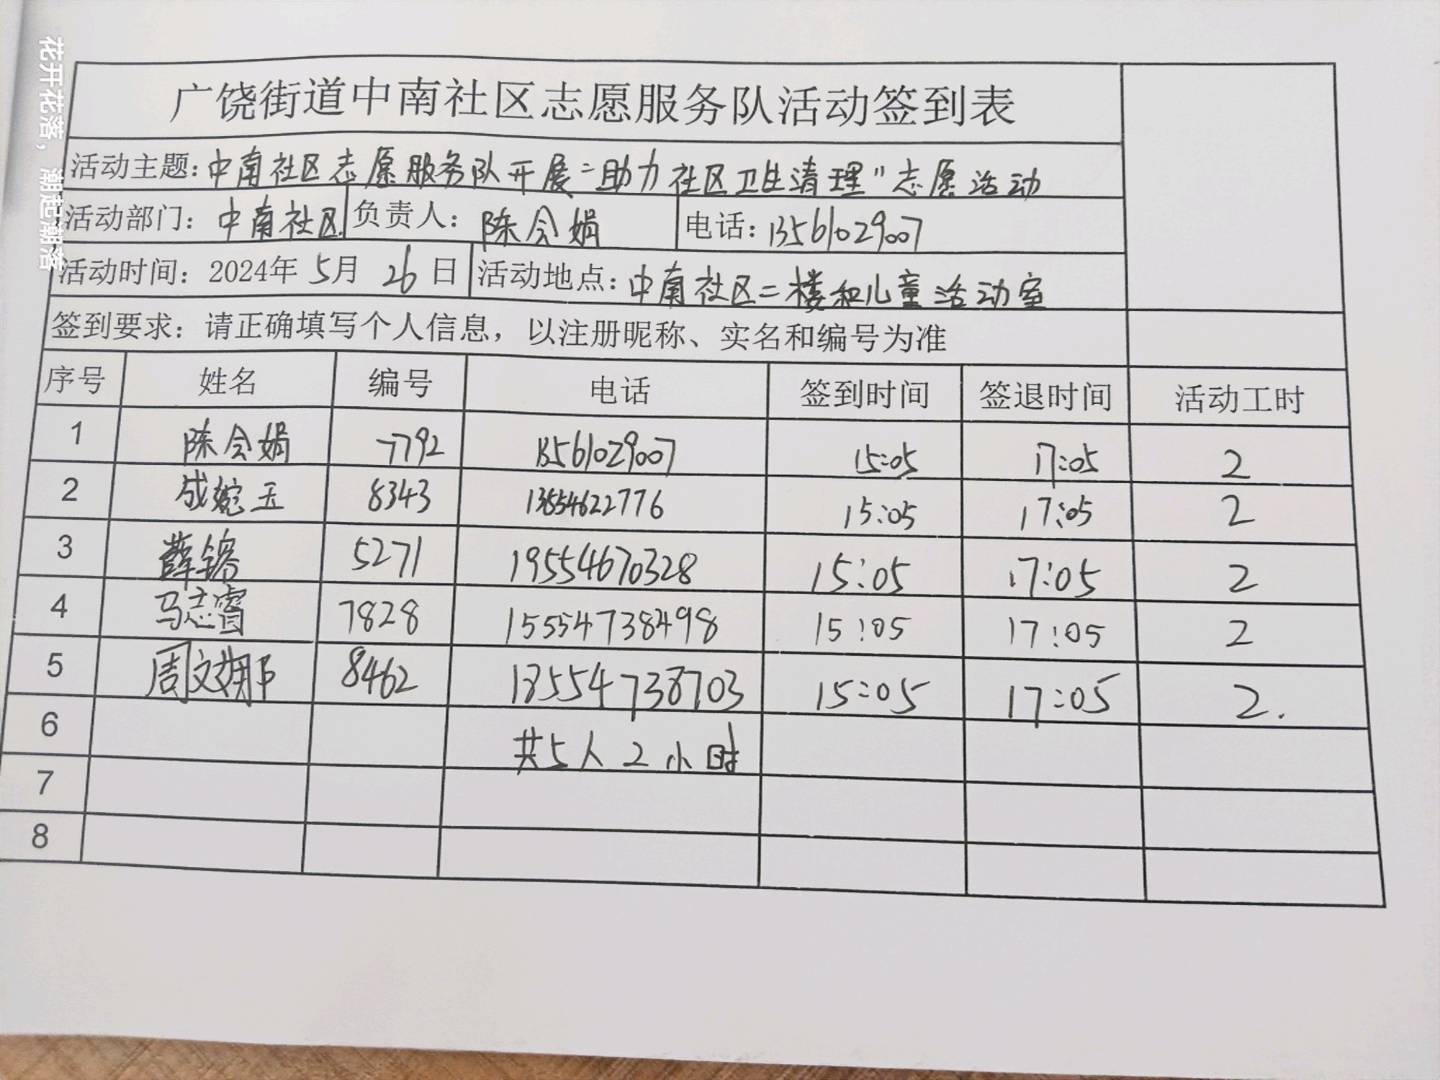 花开花落，潮起潮落
广饶街道中南社区志愿服务队活动签到表
活动主题：中南社区志愿服务队开展“助力社区卫生清理”志愿活动
活动部门：中南社区 负责人：陈会娟 电话：13561029007
活动时间：2024年5月26日 活动地点：中南社区二楼和儿童活动室
签到要求：请正确填写个人信息，以注册昵称、实名和编号为准
序号 姓名 编号 电话 签到时间 签退时间 活动工时
1 陈会娟 7792 13561029007 15:05 17:05 2
2 成婉玉 8343 13554622776 15:05 17:05 2
3 薛镕 5271 19554670328 15:05 17:05 2
4 马志睿 7828 15554738498 15:05 17:05 2
5 周文娜 8462 18554738703 15:05 17:05 2.
6 共5人2小时
7
8